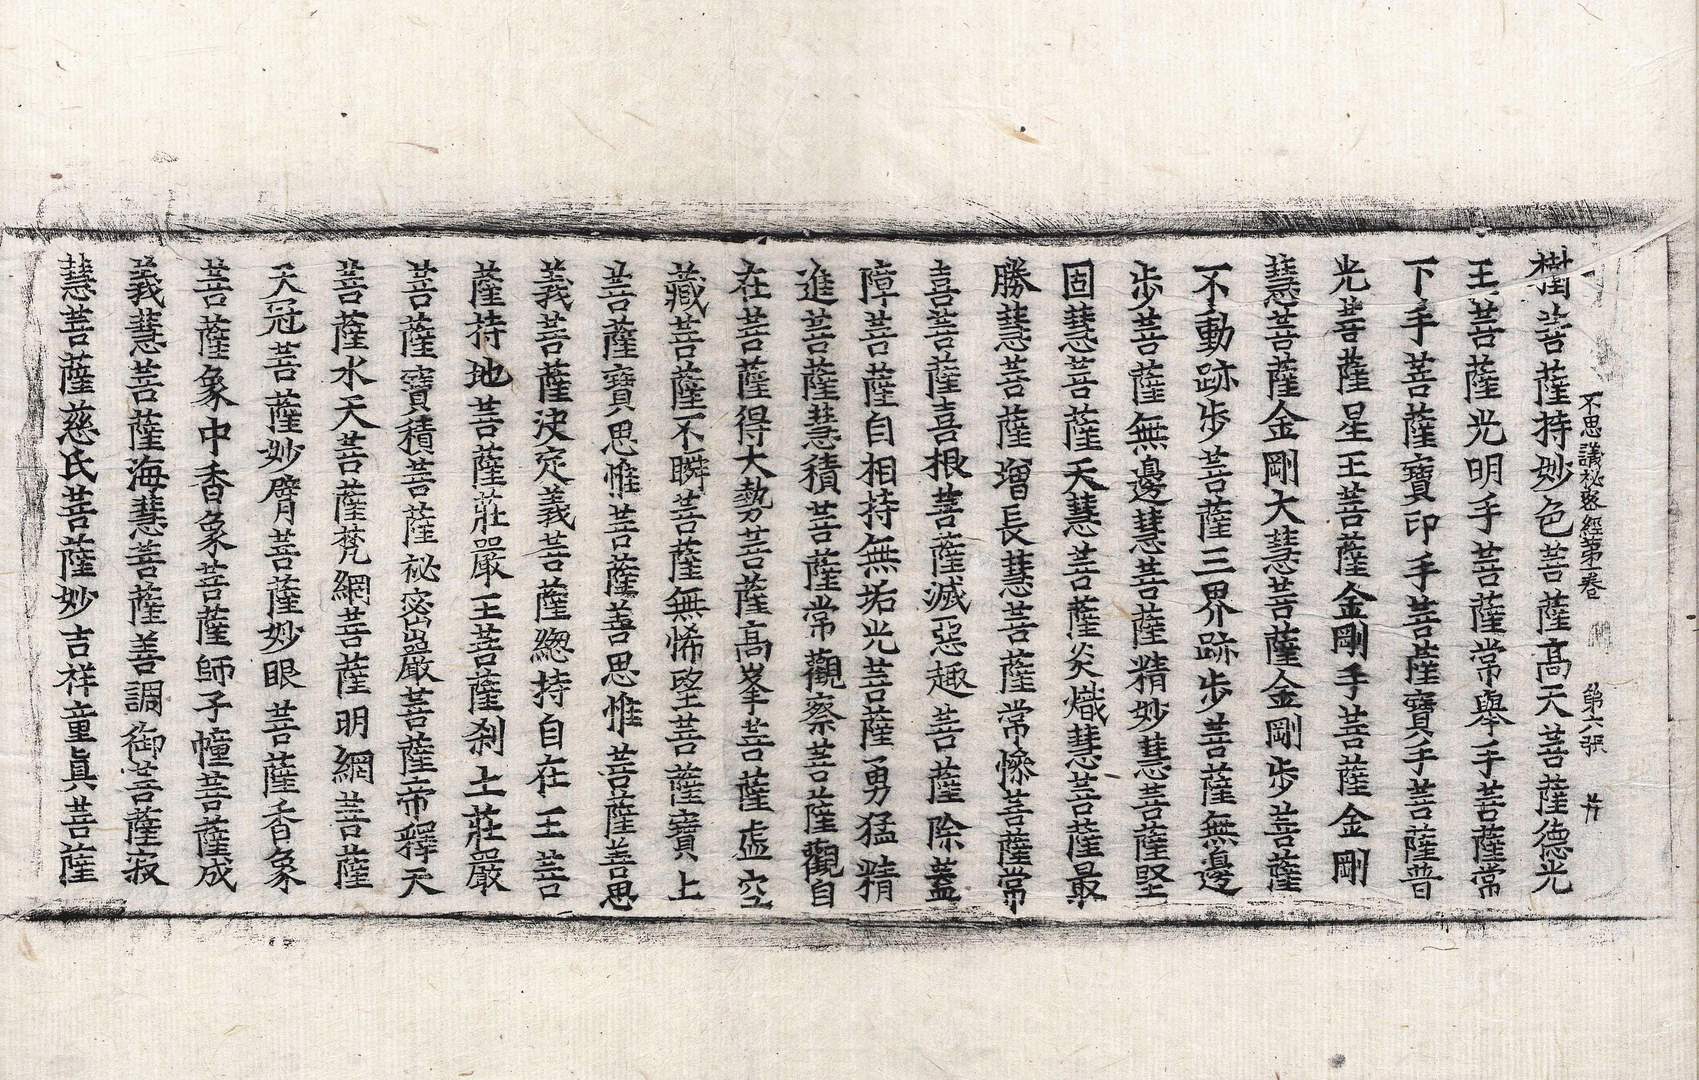 不思議秘密經第一卷 第六張 芥
樹菩薩持妙色菩薩高天菩薩德光
王菩薩光明手菩薩常舉手菩薩常
下手菩薩寶印手菩薩寶手菩薩普
光菩薩星王菩薩金剛手菩薩金剛
慧菩薩金剛大慧菩薩金剛步菩薩
不動跡步菩薩三界跡步菩薩無邊
步菩薩無邊慧菩薩精妙慧菩薩堅
固慧菩薩天慧菩薩炎熾慧菩薩最
勝慧菩薩增長慧菩薩常慘菩薩常
喜菩薩喜根菩薩滅惡趣菩薩除蓋
障菩薩自相持無垢光菩薩勇猛精
進菩薩慧積菩薩常觀察菩薩觀自
在菩薩得大勢菩薩高峯菩薩虛空
藏菩薩不瞬菩薩無悕望菩薩寶上
菩薩寶思惟菩薩善思惟菩薩善思
義菩薩決定義菩薩緫持自在王菩
薩持地菩薩莊嚴王菩薩剎土莊嚴
菩薩寶積菩薩祕密嚴菩薩帝釋天
菩薩水天菩薩梵網菩薩明網菩薩
天冠菩薩妙臂菩薩妙眼菩薩香象
菩薩象中香象菩薩師子幢菩薩成
義慧菩薩海慧菩薩善調御菩薩寂
慧菩薩慈氏菩薩妙吉祥童眞菩薩